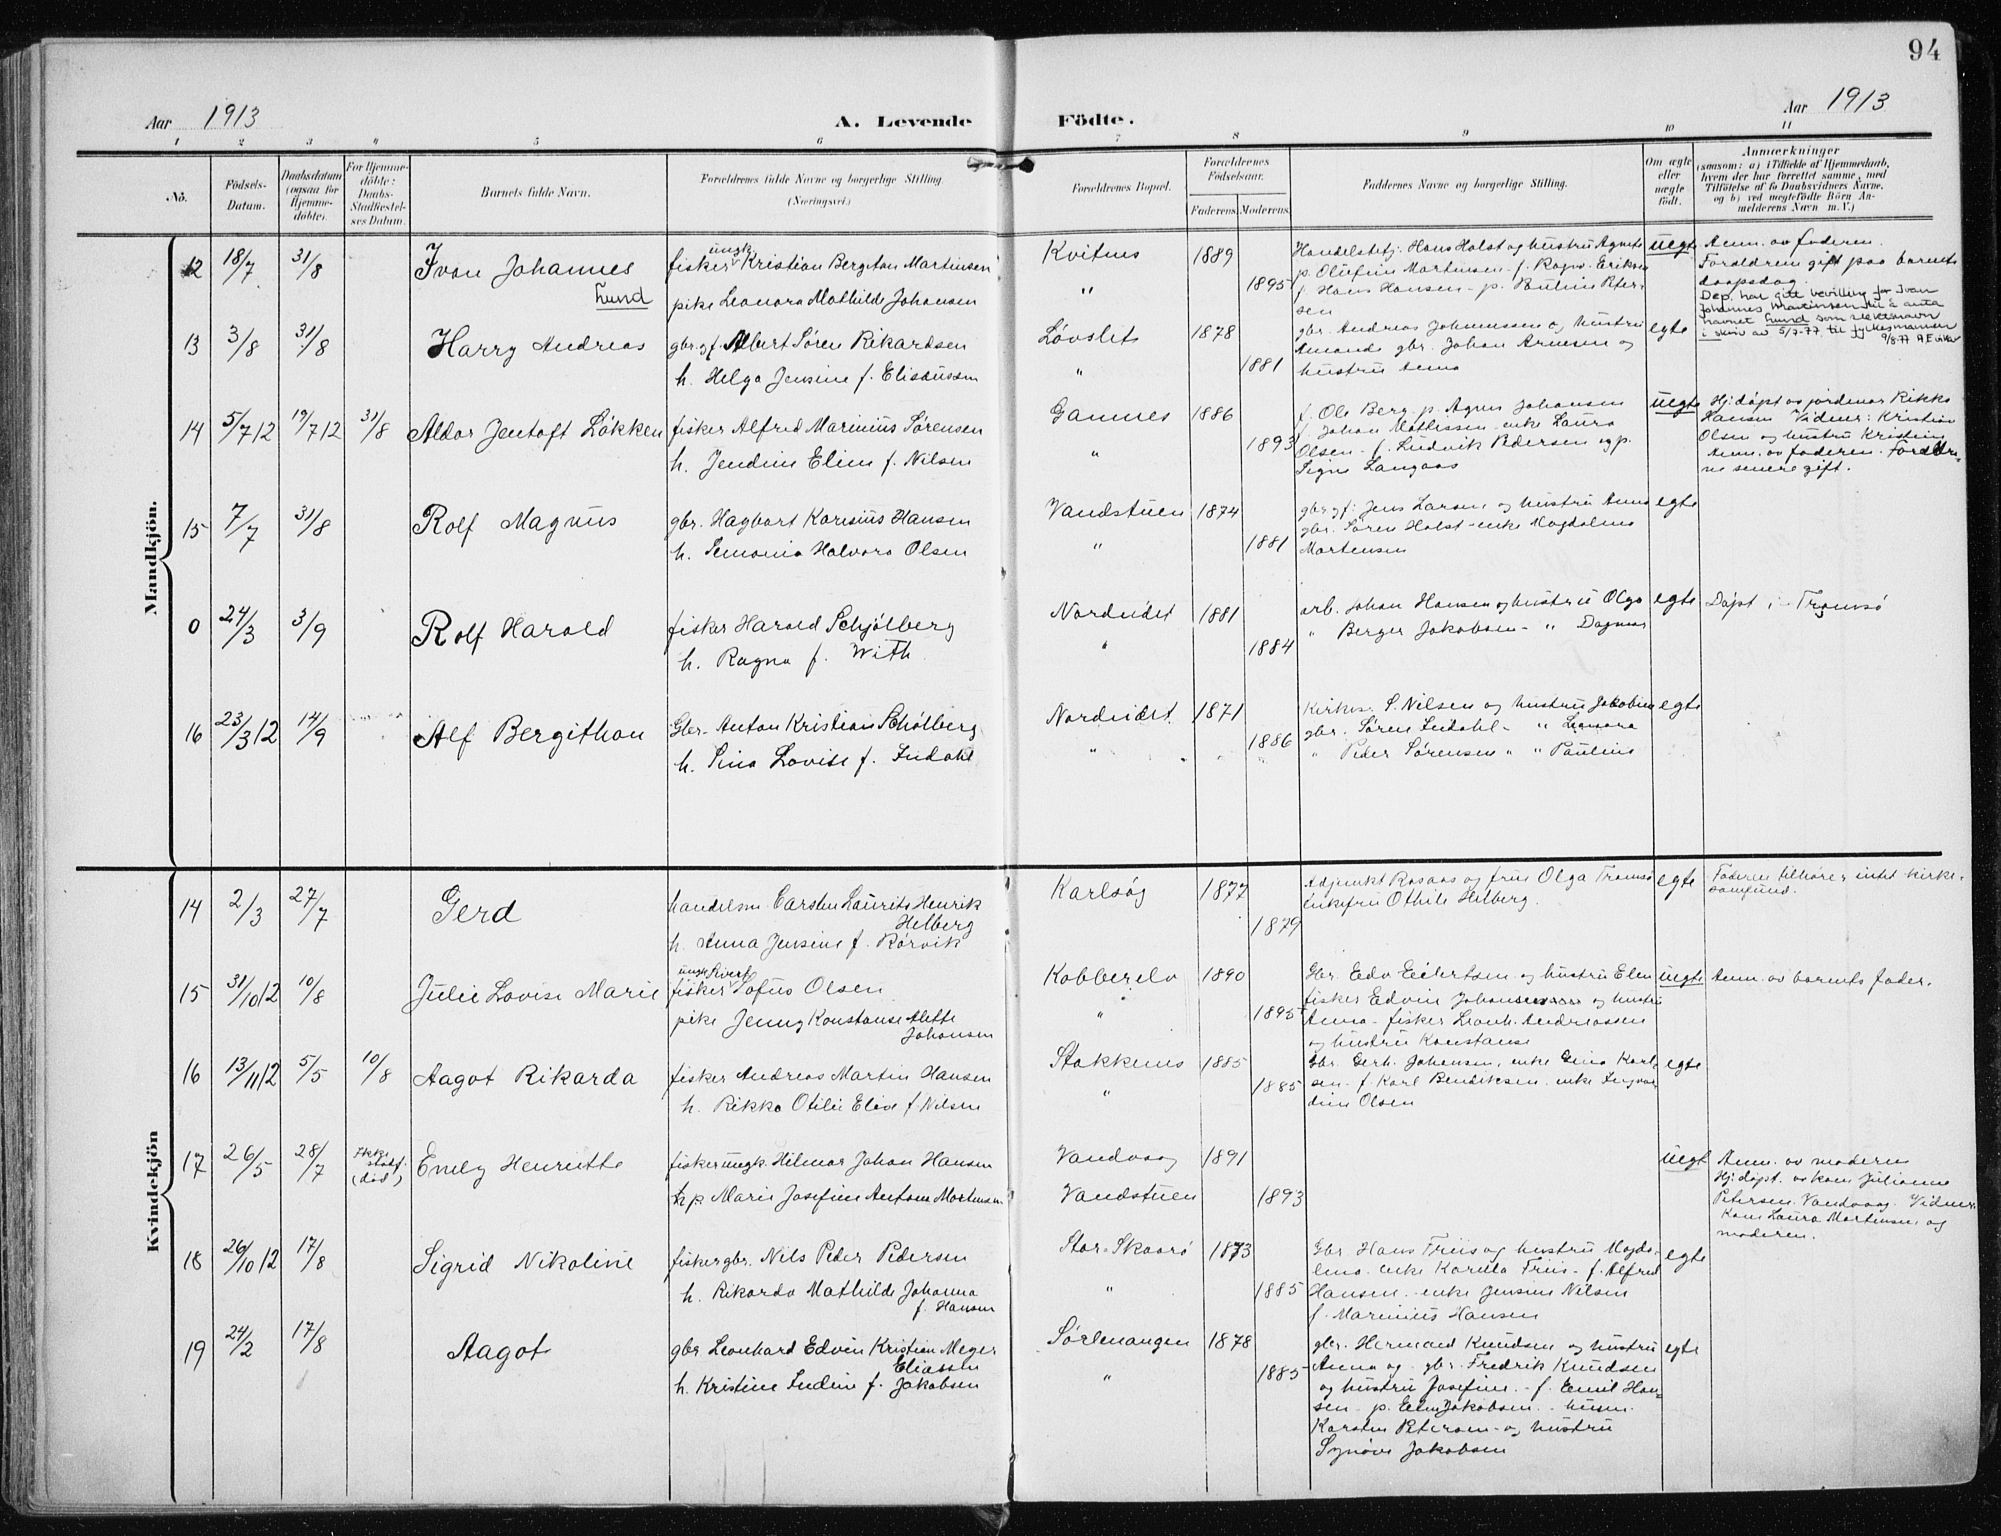 94
Aar 1913
A. Levende Födte.
Aar 1913
1 2 3 4 5 6 7 8 9 10 11
No.
Födsels-
Datum.
Daabsdatum
(ogsaa for
Hjemme-
döbte).
For Hjemme-
döbte:
Daabs-
Stadfæstel-
ses Datum.
Barnets fulde Navn.
Forældrenes fulde Navne og borgerlige Stilling.
(Næringsvei.)
Forældrenes Bopæl.
Forældrenes
Födselsaar.
Faderens. Moderens.
Faddernes Navne og borgerlige Stilling.
Om ægte
eller
uægte
født.
Anmærkninger
(saasom: a) i Tilfælde af Hjemmedaab,
hvem der har forrettet samme, med
Tilföielse af to Daabsvidners Navne,
og b) ved uægtefödte Börn An-
melderens Navn m. V.)
Mandkjön.
12 18/7 31/8 Ivan Johannes
Lund
ungk.
fisker Kristian Bergiton Martinsen
pike Leonora Mathilde Johansen
Kvitnes 1889
" 1895
Handelsbetj. Hans Holst og hustru Agnete
p. Olufine Martinsen - f. Ragnv. Eriksen
f. Hans Hansen - p. Pauline Peter-
sen
uegte
Anm. av faderen.
Foreldrene gift paa barnets
daapsdag.
Dep. har gitt bevilling for Ivan
Johannes Martinsen til å anta
navnet Lund som slektsnavn
i skriv av 5/7-77 til fylkesmannen
9/8-77
13 3/8 31/8 Harry Andreas
gbr. f. Albert Søren Rikardsen
h. Helga Jensine f. Elisæussen
Løvslet 1878
" 1881
gbr. Andreas Johannssen og hustru
Amanda gbr. Johan Arnesen og
hustru Anna
egte
14 5/7 12 19/7 12 31/8 Aldor Jentoft Løkken
fisker Alfred Marinius Sørensen
h. Jendine Eline f. Nilsen
Gamnes 1886
" 1893
f. Ole Berg - p. Agnes Johansen
f. Johan Mathissen - enke Laura
Olsen - f. Ludvik Pedersen og p.
Signe Langaas
uegte
Hj: døpt av jordemor Rikka
Hansen Vidner: Kristian
Olsen og hustru Kristine
Anm. av faderen. Foreldre-
ne senere gift.
15 7/7 31/8 Rolf Magnus
gbr. Hagbart Karelius Hansen
h. Semonia Halvara Olsen
Vandstuen 1874
" 1881
gbr. f: Jens Larsen og hustru Anna
gbr. Søren Holst - enke Magdalena
Martensen
egte
0 24/3 3/9 Rolf Harald
fisker Harald Schjølberg
h. Ragna f. With
Nordeidet 1881
" 1884
arb. Johan Hansen og hustru Olga
" Berger Jakobsen - " Dagmar
egte
Døpt i Tromsø
16 23/3 12 14/9 Alf Bergithon
Gbr. Anton Kristian Schølberg
h. Sina Lovise f. Indahl
Nordeidet 1871
" 1886
Kirkes. S. Nilsen og hustru Jakobine
gbr. Søren Indahl - " Leonora
" Peder Sørensen " " Pauline
egte
Kvindekjön
14 2/3 27/7 Gerd
handelsm. Carsten Laurits Henrik
Helberg
h. Anna Jensine f. Rørvik
Karlsøy 1877
1879
Adjunkt Rosaas og frue Olga Tromsø
enkefru Othile Helberg.
egte
Faderen tilhører intet kirke-
samfund.
15 31/10 12 10/8 Julie Lovise Marie
ungk. Sivert
fisker Sofus Olsen
pike Jenny Konstanse Alette
Johansen
Kobberelv 1890
" 1895
Gbr. Edv Eilertsen og hustru Elen
fisker Edvin Johansen og hustru
Anna - fisker Leonh. Andreassen
og hustru Konstanse
uegte
Anm. av barnets fader.
16 13/11 12 5/5 10/8 Aagot Rikarda
fisker Andreas Martin Hansen
h. Rikka Otilie Elise f. Nilsen
Stakkenes 1885
" 1885
Gbr. Gerh. Johansen, enke Gina Karl-
sen - f. Karl Bendiksen - enke Ingvar-
dine Olsen
egte
17 26/5 28/7 Ikke
stadf.
(död) Emely Henriette
fisker ungk. Hilmar Johan Hansen
p. Marie Josefine Antone Mortensen
Vandvaag 1891
Vandstuen 1893
uegt
Anm. av moderen
Hj: døpt. av kone Julianne
Petersen. Vandvaag. Vidner
Kone Laura Mortensen og
moderen.
18 26/10 12 17/8 Sigrid Nikoline
fisker gbr. Nils Peder Pedersen
h. Rikarda Mathilde Johanna
f. Hansen
Stor-Skaarø 1873
" 1885
Gbr. Hans Friis og hustru Magda-
lena - enke Karella Friis - f. Alfred
Hansen - enke Jensine Nilsen
f. Marinius Hansen
egte
19 24/2 17/8 Aagot
gbr. Leonhard Edvin Kristian Meyer
Eliassen
h. Kristine Indine f. Jakobsen
Sørlenangen 1878
" 1885
gbr. Herman Knudsen og hustru
Anna og gbr. Fredrik Knudsen
og hustru Josefine - f. Emil Han-
sen - p. Elen Jakobsen -
Karsten Petersen og hustru
Synøve Jakobsen
egte